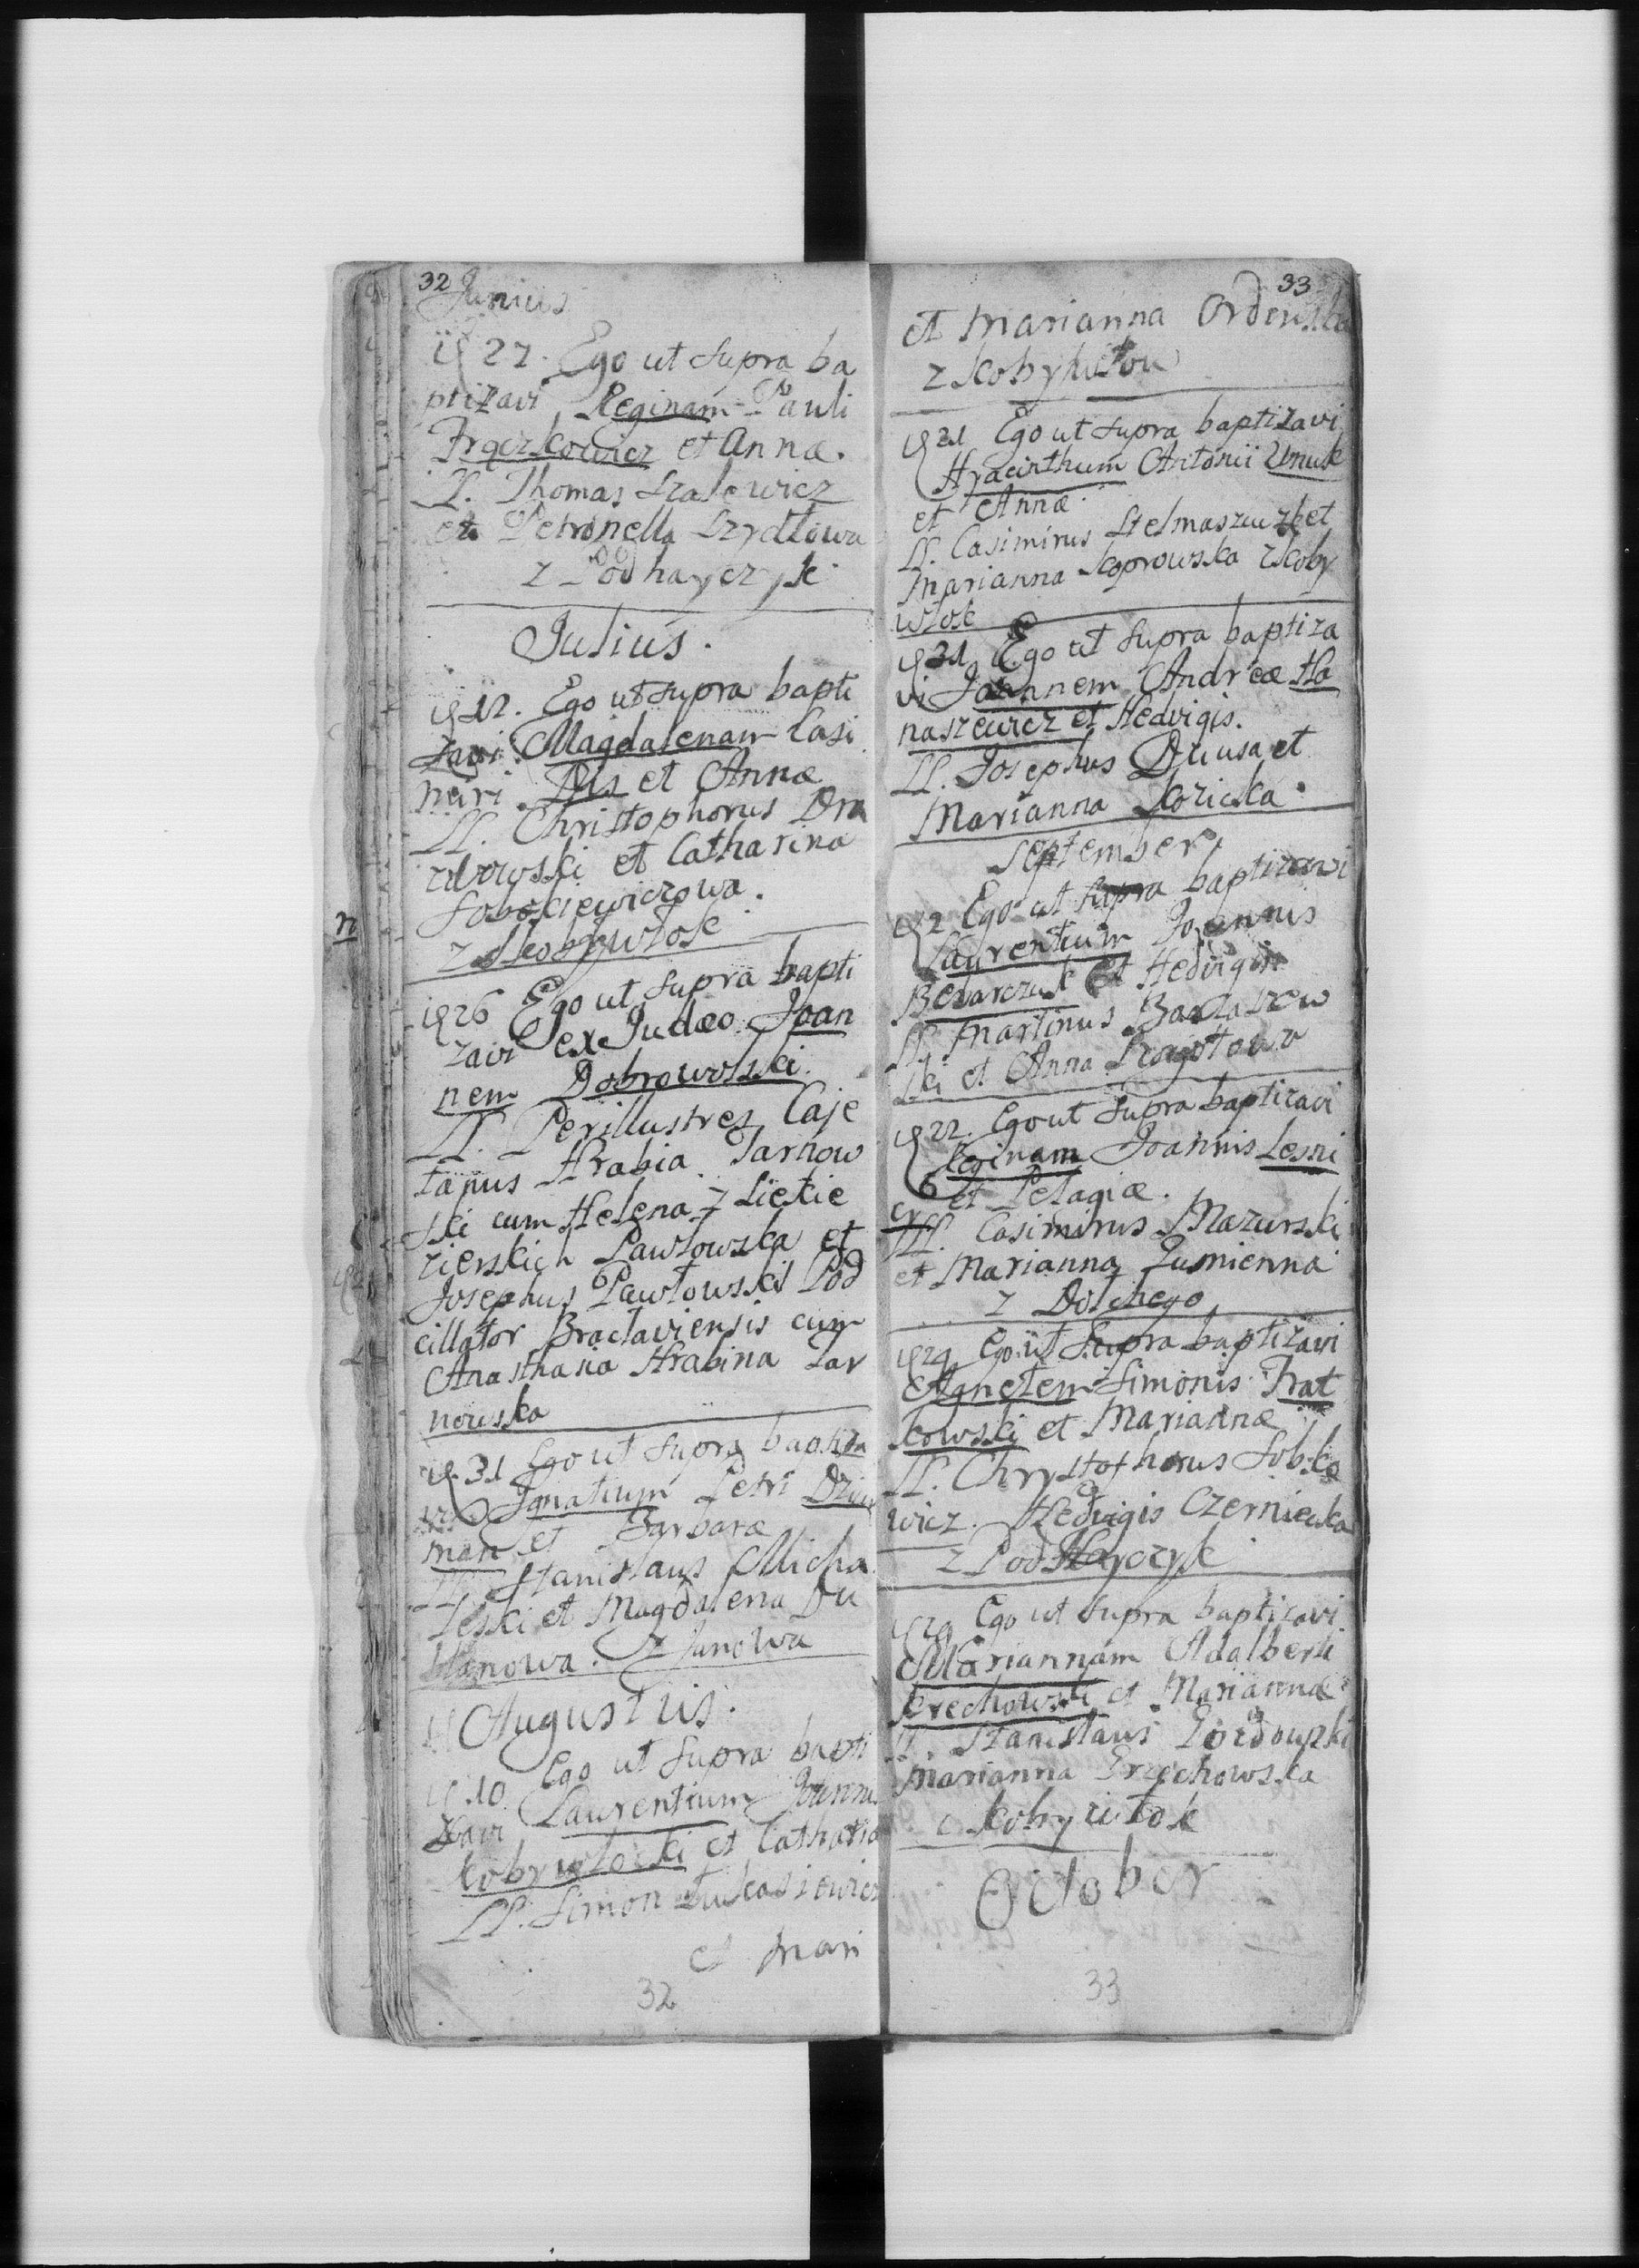 32
Junius
27. Ego ut supra ba
ptizavi Reginam Pauli
Frąckowicz et Anna.
LL. Thomas Szalewicz
et Petronella Szydłowa
z Podhayczyk
Julius.
12. Ego ut supra bapti
zavi Magdalenam Casi
miri Dis et Annæ
LL. Christophorus Dro
zdowski et Catharina
Sobościewiczowa.
z Kobywłok
n
26 Ego ut supra bapti
zavi ex Judæo Joan
nem Dobrowolski.
LL. Perillustres Caje
tanus Hrabia Tarnow
ski cum Helena z Siekie
rzierskich Pawłowska et
Josephus Pawłowski Pod
cillator Bracłaviensis cum
Anasthasia Hrabina Tar
nowska
31 Ego ut supra baptiza
vi Ignatium Petri
man et Barbaræ
LL. Stanislaus Micha
lski et Magdalena Du
manowa. z Janowa
Augustus.
10 Ego ut supra bapti
zavi Laurentium Joannis
Kobywłocki et Catharina
LL. Simon Łukasiewicz
et Mari
32
33
et Marianna Ordenska
z Kobywłok
21 Ego ut supra baptizavi
Hyacinthum Antonii Wnuk
et Annæ
LL. Casimirus Stelmaszuzk et
Marianna Koprowska z Koby
włok
31 Ego ut supra baptiza
vi Joannem Andreæ Ha
naszewicz et Hedvigis.
LL. Josephus Driusa et
Marianna Kozicka.
September
2 Ego ut supra baptizavi
Laurentium Joannis
Bednarczuk et Hedvigis
LL. Martinus Bartaszew
ski et Anna
22. Ego ut supra baptizavi
Reginam Joannis Lesni
6
cy et Pelagiæ.
LL. Casimirus Mazurski
et Marianna Jumienna
z Dolchego
29 Ego ut supra baptizavi
Agnetem Simonis Frat
kowski et Mariannæ
LL. Chrystophorus Sobko
wicz. Hedvigis Czerniecka
z Pod Hayczyk
29 Ego ut supra baptizavi
Mariannam Adalberti
Krechowski et Mariannæ
LL. Stanislaus Gordowski
Marianna Grzechowska
z Kobywłok
October
33